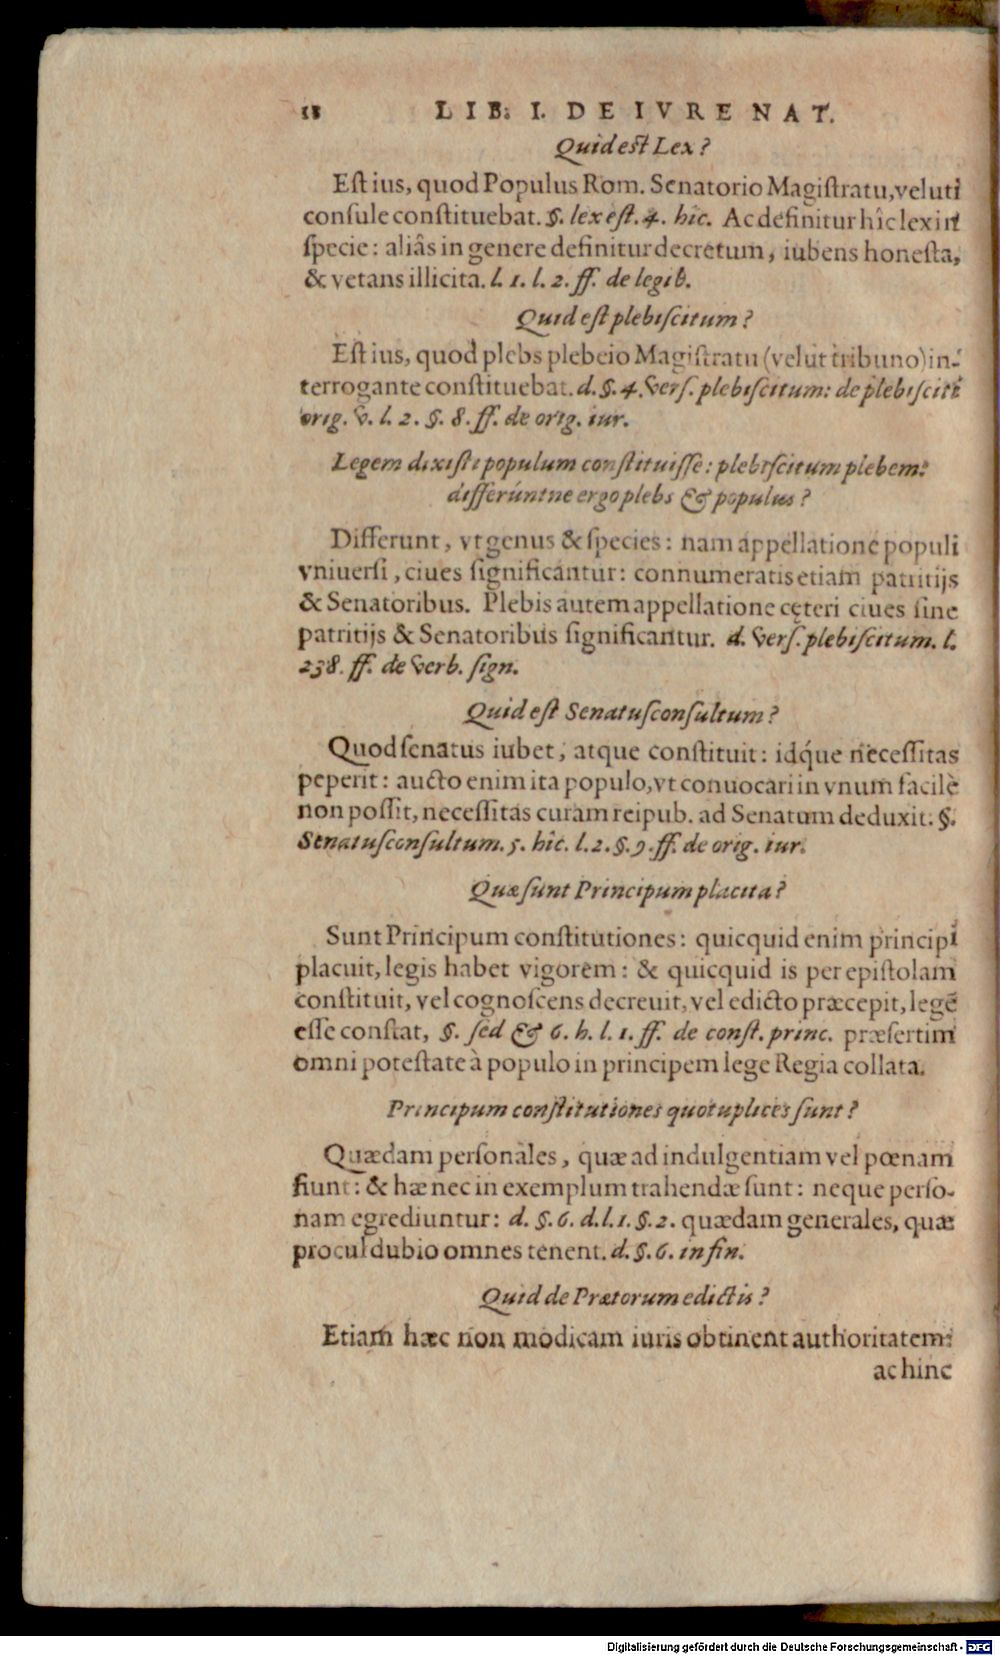 18 LIB. I. DE IVRE NAT.
Quid est Lex?
Est ius, quod Populus Rom. Senatorio Magistratu, veluti
consule constituebat. §. lex est. 4. hic. Ac definitur hîc lex in
specie: aliâs in genere definitur decretum, iubens honesta,
& vetans illicita. l. 1. l. 2. ff. de legib.
Quid est plebiscitum?
Est ius, quod plebs plebeio Magistratu (velut tribuno) in-
terrogante constituebat. d. §. 4. vers. plebiscitum: de plebisciti
orig. v. l. 2. §. 8. ff. de orig. iur.
Legem dixisti populum constituisse: plebiscitum plebem:
differúntne ergo plebs & populus?
Differunt, vt genus & species: nam appellatione populi
vniuersi, ciues significantur: connumeratis etiam patritijs
& Senatoribus. Plebis autem appellatione cęteri ciues sine
patritijs & Senatoribus significantur. d. vers. plebiscitum. l.
238. ff. de verb. sign.
Quid est Senatusconsultum?
Quod senatus iubet, atque constituit: idq́ue necessitas
peperit: aucto enim ita populo, vt conuocari in vnum facilè
non possit, necessitas curam reipub. ad Senatum deduxit. §.
Senatusconsultum. 5. hîc. l. 2. §. 9. ff. de orig. iur.
Quæ sunt Principum placita?
Sunt Principum constitutiones: quicquid enim principi
placuit, legis habet vigorem: & quicquid is per epistolam
constituit, vel cognoscens decreuit, vel edicto præcepit, legẽ
esse constat, §. sed & 6. h. l. 1. ff. de const. princ. præsertim
omni potestate à populo in principem lege Regia collata.
Principum constitutiones quotuplices sunt?
Quædam personales, quæ ad indulgentiam vel pœnam
fiunt: & hæ nec in exemplum trahendæ sunt: neque perso-
nam egrediuntur: d. §. 6. d. l. 1. §. 2. quædam generales, quæ
procul dubio omnes tenent. d. §. 6. in fin.
Quid de Prætorum edictis?
Etiam hæc non modicam iuris obtinent authoritatem:
ac hinc
Digitalisierung gefördert durch die Deutsche Forschungsgemeinschaft - DFG